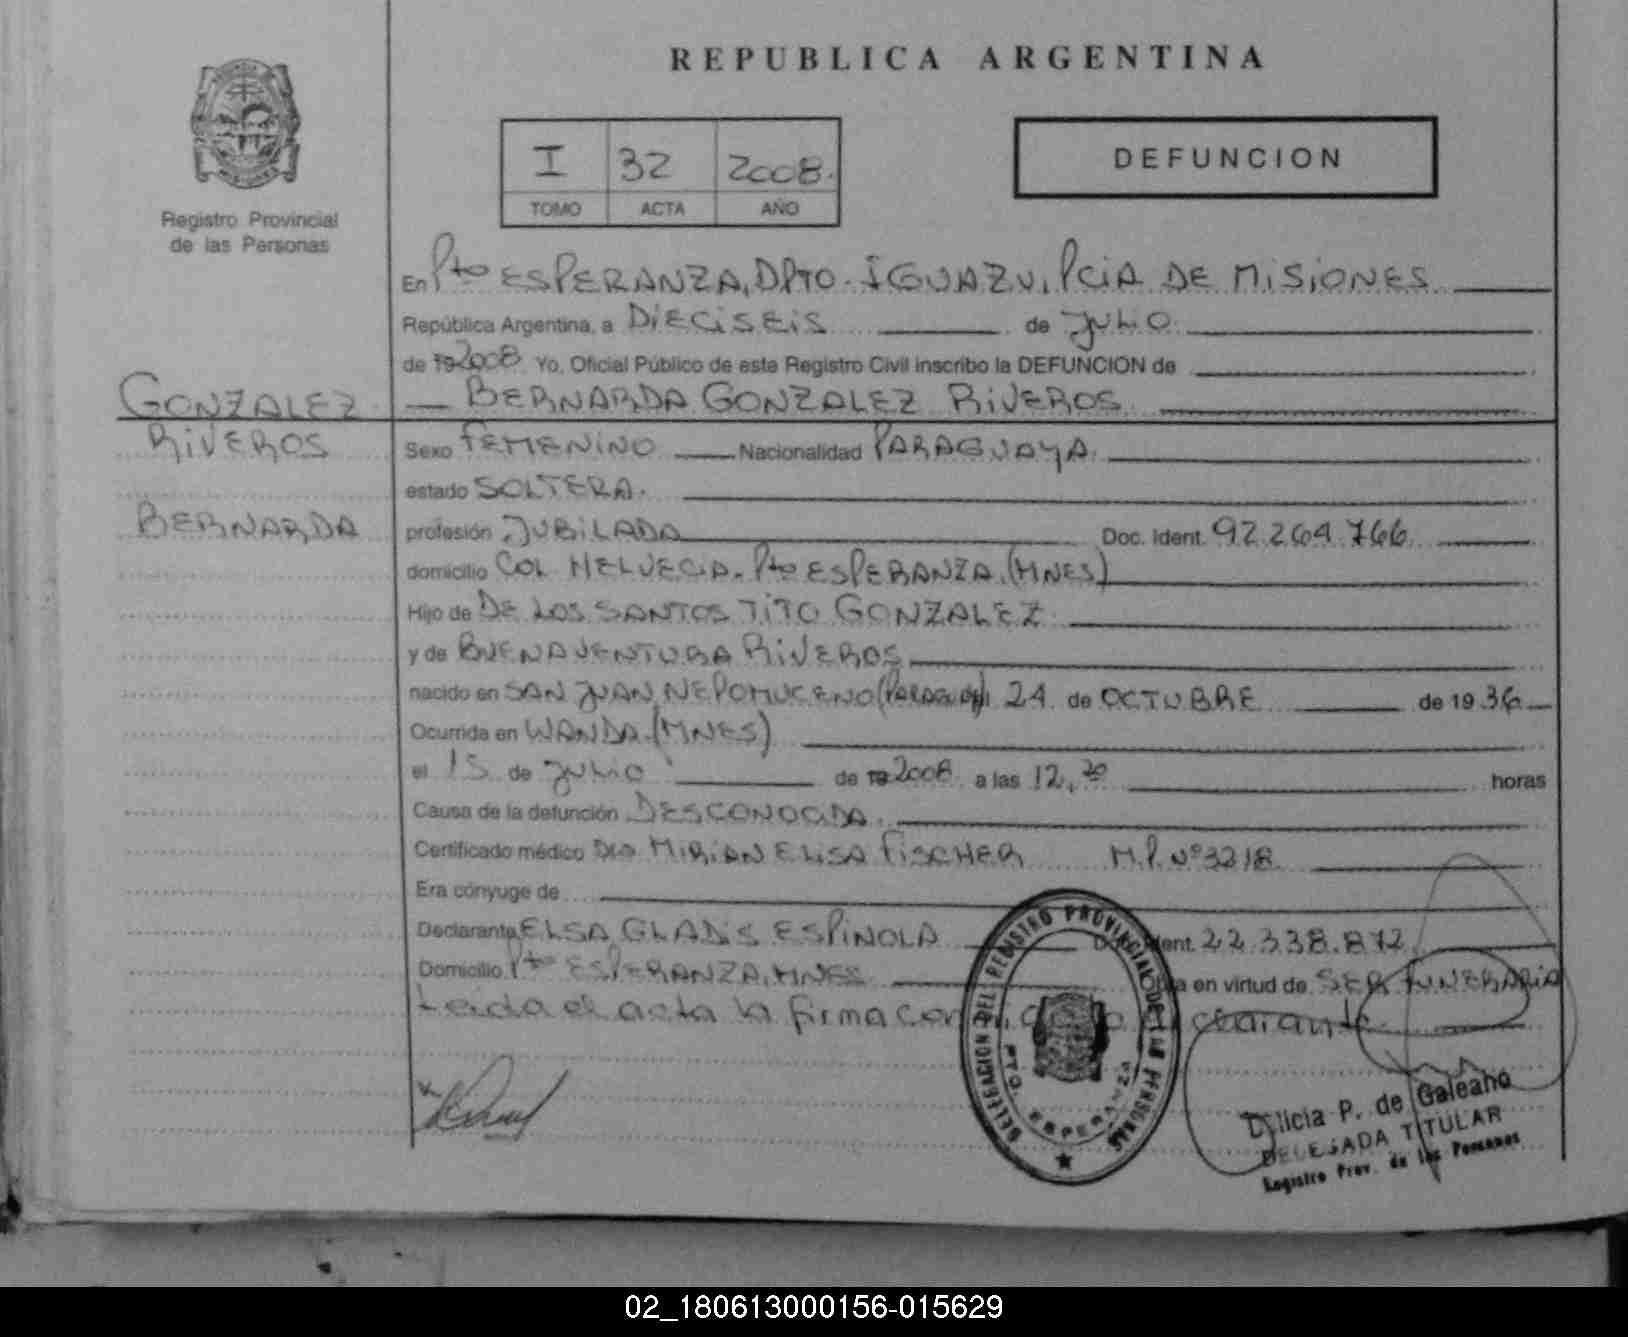 REPUBLICA ARGENTINA
Registro Provincial
de las Personas
I 32 2008.
TOMO ACTA AÑO
DEFUNCION
En Pto ESPERANZA, DPTO. IGUAZU, PCIA DE MISIONES
República Argentina, a DIECISEIS de JULIO
de 19 2008 Yo, Oficial Público de este Registro Civil inscribo la DEFUNCION de
BERNARDA GONZALEZ RIVEROS
GONZALEZ
RIVEROS
BERNARDA
Sexo FEMENINO Nacionalidad PARAGUAYA.
estado SOLTERA.
profesión JUBILADA Doc. Ident. 92.264.766
domicilio COL HELVECIA. Pto ESPERANZA. (MNES)
Hijo de DE LOS SANTOS TITO GONZALEZ
y de BUENAVENTURA RIVEROS
nacido en SAN JUAN NEPOMUCENO (PARAGUAY) 24 de OCTUBRE de 19 36
Ocurrida en WANDA (MNES)
el 15 de JULIO de 19 2008 a las 12,20 horas
Causa de la defunción DESCONOCIDA.
Certificado médico Dra MIRIAN ELISA FISCHER M.P. Nº 3218
Era cónyuge de
Declarante ELSA GLADIS ESPINOLA Doc. Ident. 22.338.872
Domicilio Pto ESPERANZA, MNES en virtud de SER FUNERARIA
Leida el acta la firma con
DELEGACION DEL REGISTRO PROVINCIAL DE LAS PERSONAS
PTO. ESPERANZA
Delicia P. de Galeano
DELEGADA TITULAR
Registro Prov. de las Personas
02_180613000156-015629